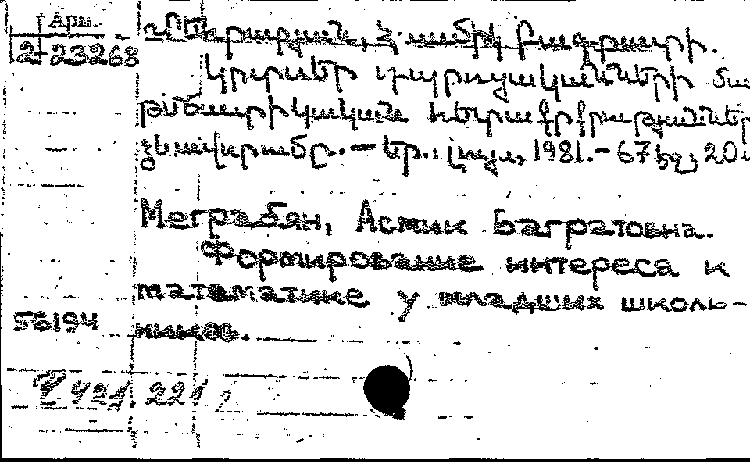 Арм.
2-23268
Կրտսեր դպրոցականների մա
թեմատիկական հետաքրքրությունների
ձևավորումը. — Եր.: Լույս, 1981. — 67 էջ, 20
Меграбян, Асмик Багратовна.
Формирование интереса к
математике у младших школь-
56194 ников.
421.221